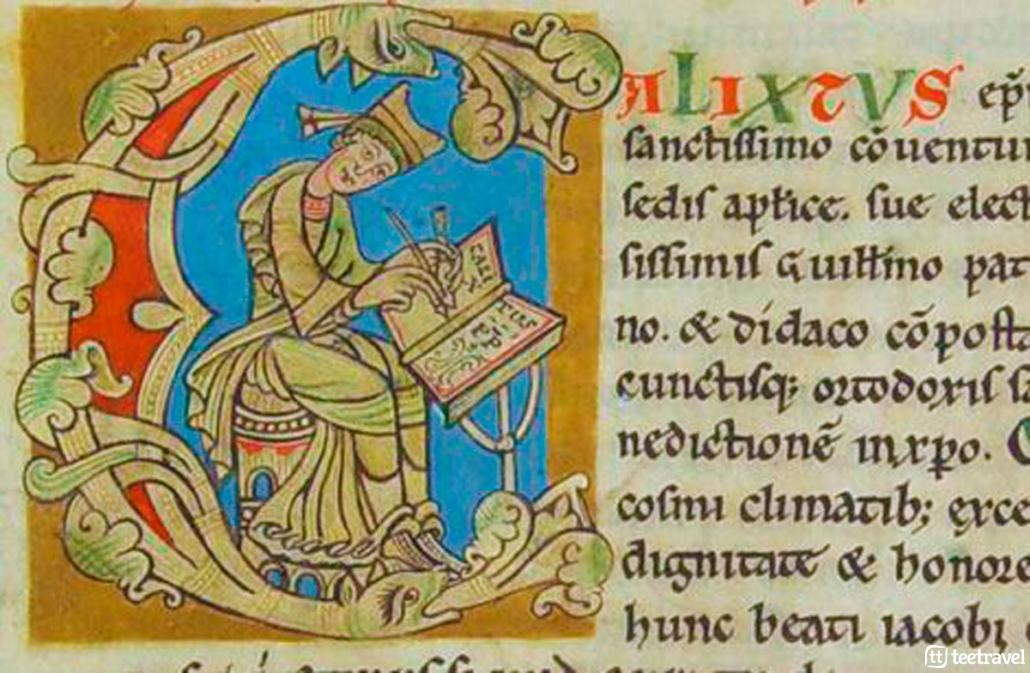 CALIXTVS ep̃
sanctissimo cõuentui
sedis aplice. sue elect
sissimis Guillĩno pat
no. & didaco cõposta
cunctisq; ortodoxis
nedictionẽ inxp̃o.
cosmi climatib; exce
dignitate & honore
hunc beati iacobi
teetravel